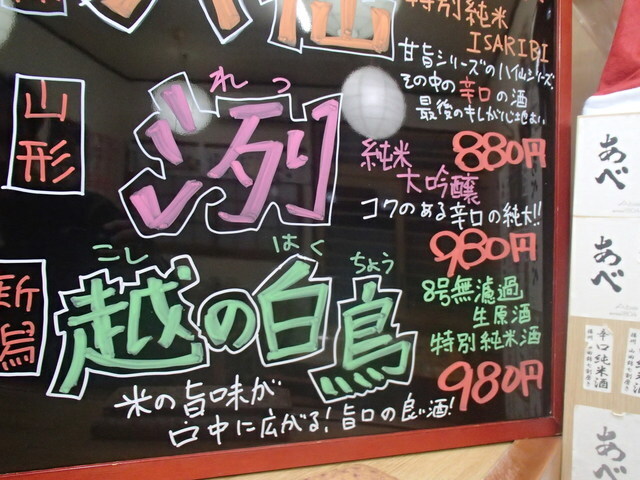 八仙
特別純米
ISARIBI
甘旨シリーズの八仙シリーズ。
その中の辛口の酒
最後のキレが心地よい
880円
山形
れつ
洌
純米
大吟醸
コクのある辛口の純大!!
980円
新潟
こし はくちょう
越の白鳥
8号無濾過
生原酒
特別純米酒
980円
米の旨味が
口中に広がる!旨口の良い酒!
あべ
あべ
辛口純米酒
あべ